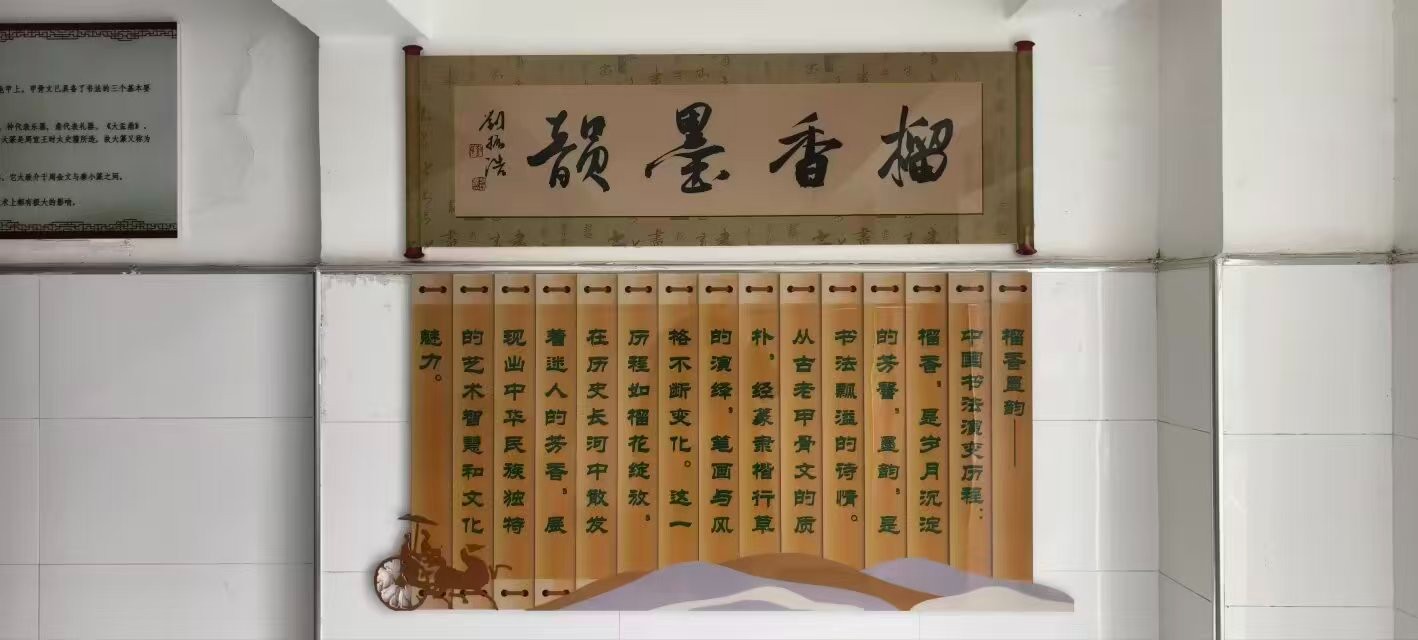 甲上。甲骨文已具备了书法的三个基本要
钟代表乐器，鼎代表礼器。《大盂鼎》、
大篆是周宣王时太史籀所造，故大篆又称为
它大致介于周金文与秦小篆之间。
术上都有极大的影响。
榴香墨韻
劉振浩
榴香墨韵——
中国书法演变历程：
榴香，是岁月沉淀
的芳馨，墨韵，是
书法飘溢的诗情。
从古老甲骨文的质
朴，经篆隶楷行草
的演绎，笔画与风
格不断变化。这一
历程如榴花绽放，
在历史长河中散发
着迷人的芳香，展
现出中华民族独特
的艺术智慧和文化
魅力。